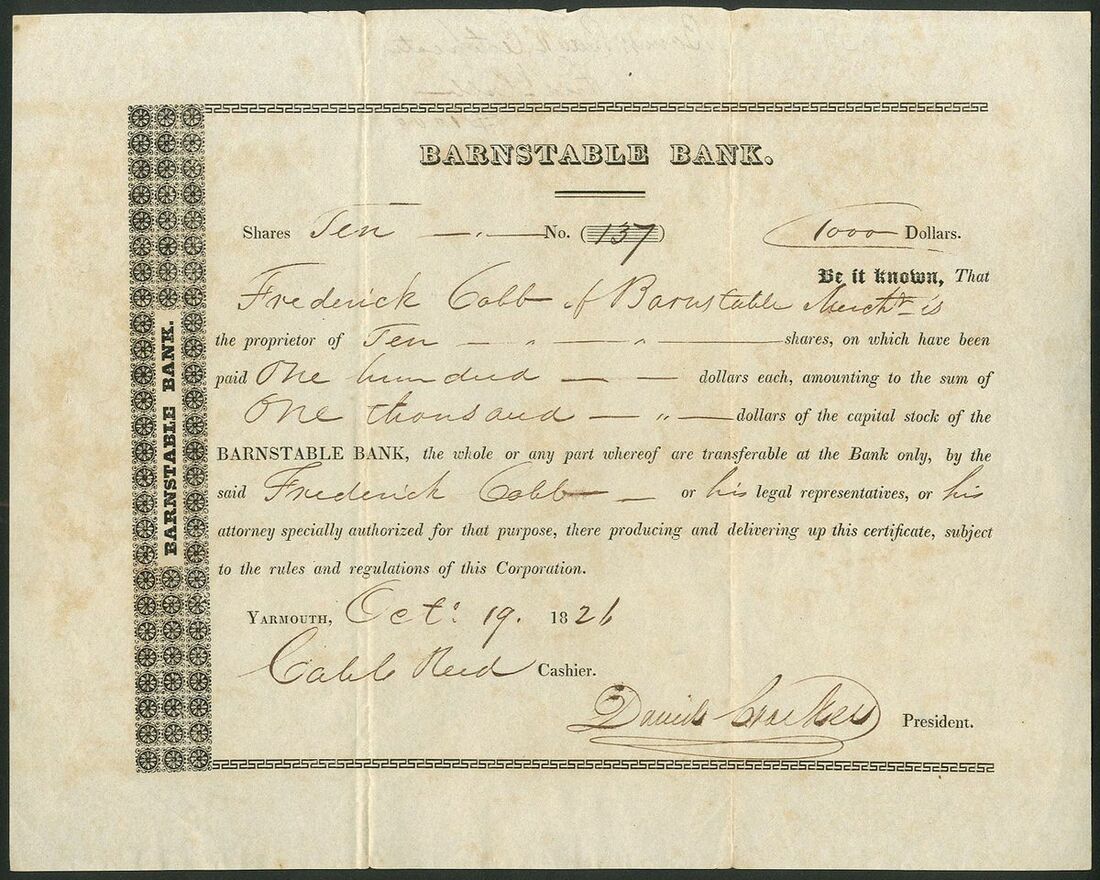 BARNSTABLE BANK.
BARNSTABLE BANK.
Shares Ten — " — No. (137) 1000 Dollars.
Be it known, That
Frederick Cobb of Barnstable Mercht. is
the proprietor of Ten — " — " — shares, on which have been
paid One hundred — — dollars each, amounting to the sum of
One thousand — " — dollars of the capital stock of the
BARNSTABLE BANK, the whole or any part whereof are transferable at the Bank only, by the
said Frederick Cobb — — or his legal representatives, or his
attorney specially authorized for that purpose, there producing and delivering up this certificate, subject
to the rules and regulations of this Corporation.
YARMOUTH, Oct. 19. 1826
Caleb Reed Cashier.
David Crocker President.